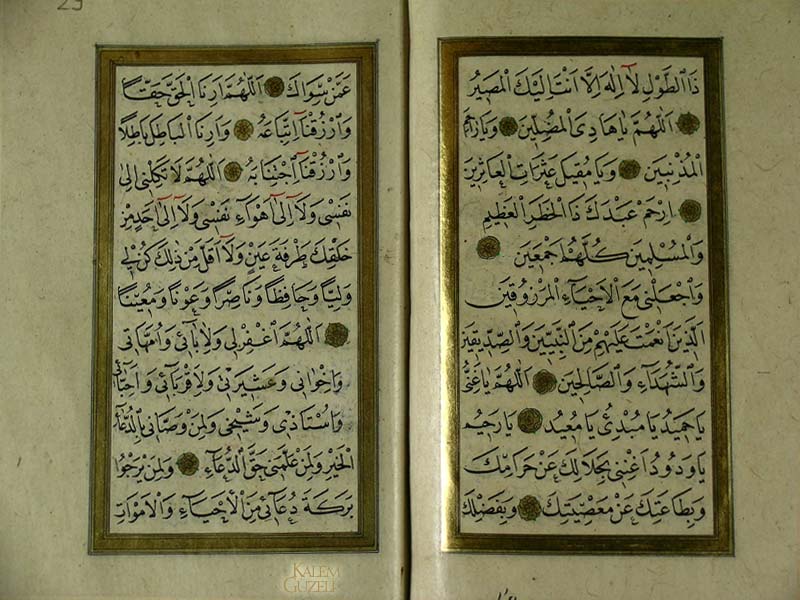 ذَا الطَّوْلِ لَا اِلٰهَ اِلَّا اَنْتَ اِلَيْكَ الْمَصِيرُ
اَللّٰهُمَّ يَا هَادِيَ الْمُضِلِّينَ وَيَا رَاحِمَ
الْمُذْنِبِينَ وَيَا مُقِيلَ عَثَرَاتِ الْعَاثِرِينَ
اِرْحَمْ عَبْدَكَ ذَا الْخَطَرِ الْعَظِيمِ
وَالْمُسْلِمِينَ كُلَّهُمْ اَجْمَعِينَ
وَاجْعَلْنِي مَعَ الْاَحْيَاءِ الْمَرْزُوقِينَ
الَّذِينَ اَنْعَمْتَ عَلَيْهِمْ مِنَ النَّبِيِّينَ وَالصِّدِّيقِينَ
وَالشُّهَدَاءِ وَالصَّالِحِينَ اَللّٰهُمَّ يَا غَنِيُّ
يَا حَمِيدُ يَا مُبْدِئُ يَا مُعِيدُ يَا رَحِيمُ
يَا وَدُودُ اَغْنِنِي بِحَلَالِكَ عَنْ حَرَامِكَ
وَبِطَاعَتِكَ عَنْ مَعْصِيَتِكَ وَبِفَضْلِكَ
عَمَّنْ سِوَاكَ اَللّٰهُمَّ اَرِنَا الْحَقَّ حَقًّا
وَارْزُقْنَا اتِّبَاعَهُ وَاَرِنَا الْبَاطِلَ بَاطِلًا
وَارْزُقْنَا اجْتِنَابَهُ اَللّٰهُمَّ لَا تَكِلْنِي اِلٰى
نَفْسِي وَلَا اِلٰى اَهْوَاءِ نَفْسِي وَلَا اِلٰى اَحَدٍ مِنْ
خَلْقِكَ طَرْفَةَ عَيْنٍ وَلَا اَقَلَّ مِنْ ذٰلِكَ كُنْ لِي
وَلِيًّا وَحَافِظًا وَنَاصِرًا وَعَوْنًا وَمُعِينًا
اَللّٰهُمَّ اغْفِرْ لِي وَلِاٰبَائِي وَاُمَّهَاتِي
وَاِخْوَانِي وَعَشِيرَتِي وَلِاَقْرِبَائِي وَاَحِبَّائِي
وَاُسْتَاذِي وَشَيْخِي وَلِمَنْ وَصَّانِي بِالدُّعَاءِ
الْخَيْرِ وَلِمَنْ عَلَّمَنِي حَقَّ الدُّعَاءِ وَلِمَنْ يَرْجُوا
بَرَكَةَ دُعَائِي مِنَ الْاَحْيَاءِ وَالْاَمْوَاتِ
KALEM
GUZELI